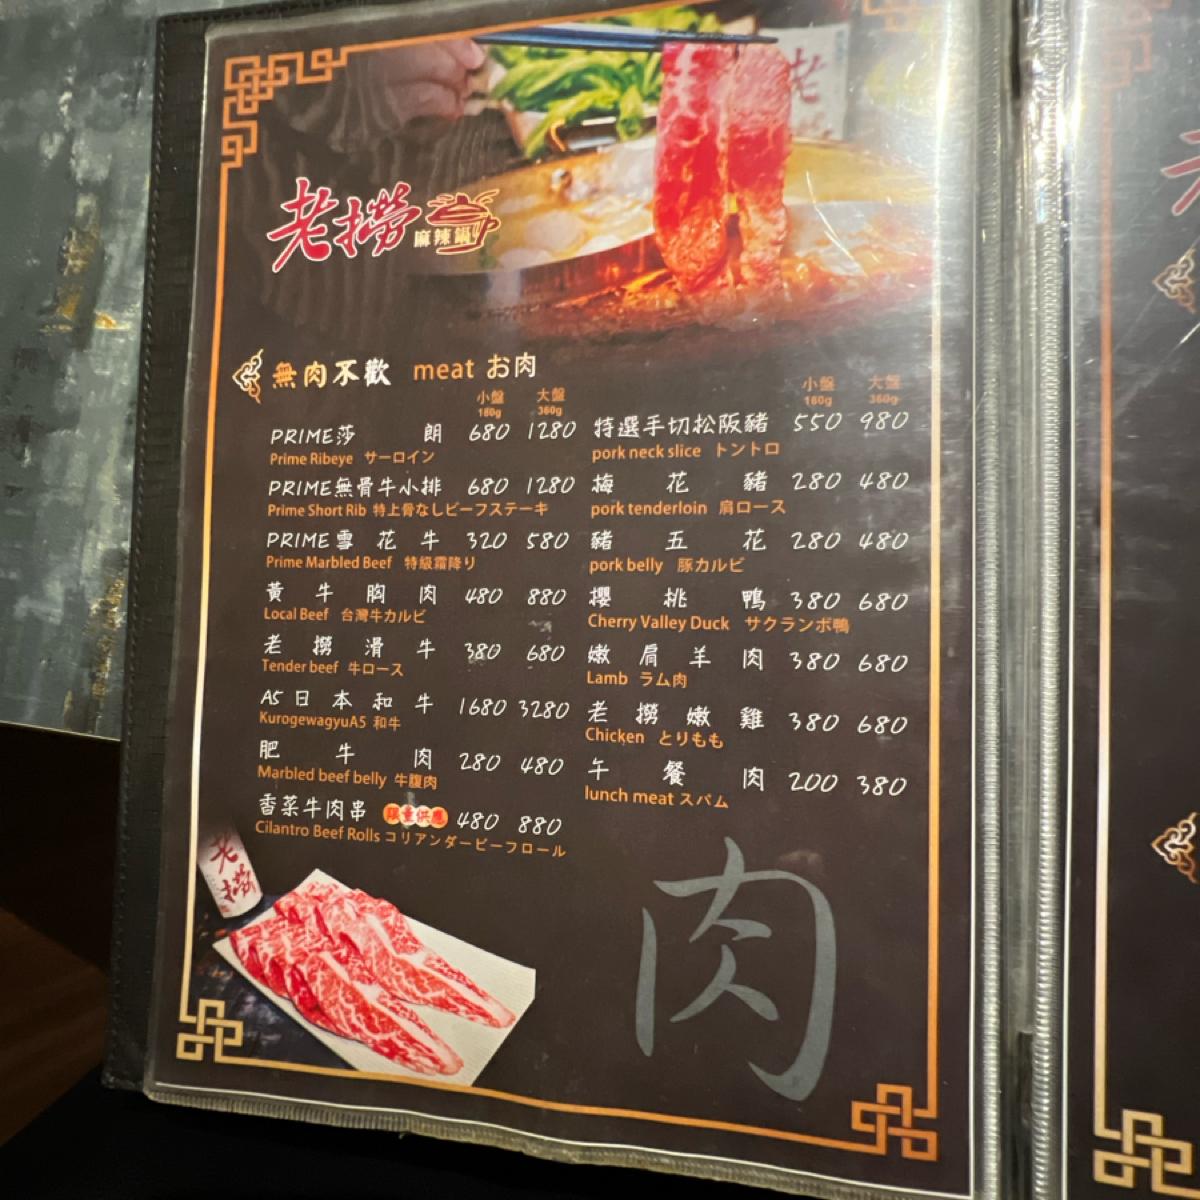 老撈
麻辣鍋
無肉不歡 meat お肉
小盤 大盤
180g 360g
PRIME莎朗 680 1280
Prime Ribeye サーロイン
PRIME無骨牛小排 680 1280
Prime Short Rib 特上骨なしビーフステーキ
PRIME雪花牛 320 580
Prime Marbled Beef 特級霜降り
黃牛胸肉 480 880
Local Beef 台灣牛カルビ
老撈滑牛 380 680
Tender beef 牛ロース
A5日本和牛 1680 3280
KurogewagyuA5 和牛
肥牛肉 280 480
Marbled beef belly 牛腹肉
香菜牛肉串 限量供應 480 880
Cilantro Beef Rolls コリアンダービーフロール
小盤 大盤
180g 360g
特選手切松阪豬 550 980
pork neck slice トントロ
梅花豬 280 480
pork tenderloin 肩ロース
豬五花 280 480
pork belly 豚カルビ
櫻桃鴨 380 680
Cherry Valley Duck サクランボ鴨
嫩肩羊肉 380 680
Lamb ラム肉
老撈嫩雞 380 680
Chicken とりもも
午餐肉 200 380
lunch meat スパム
老撈
肉